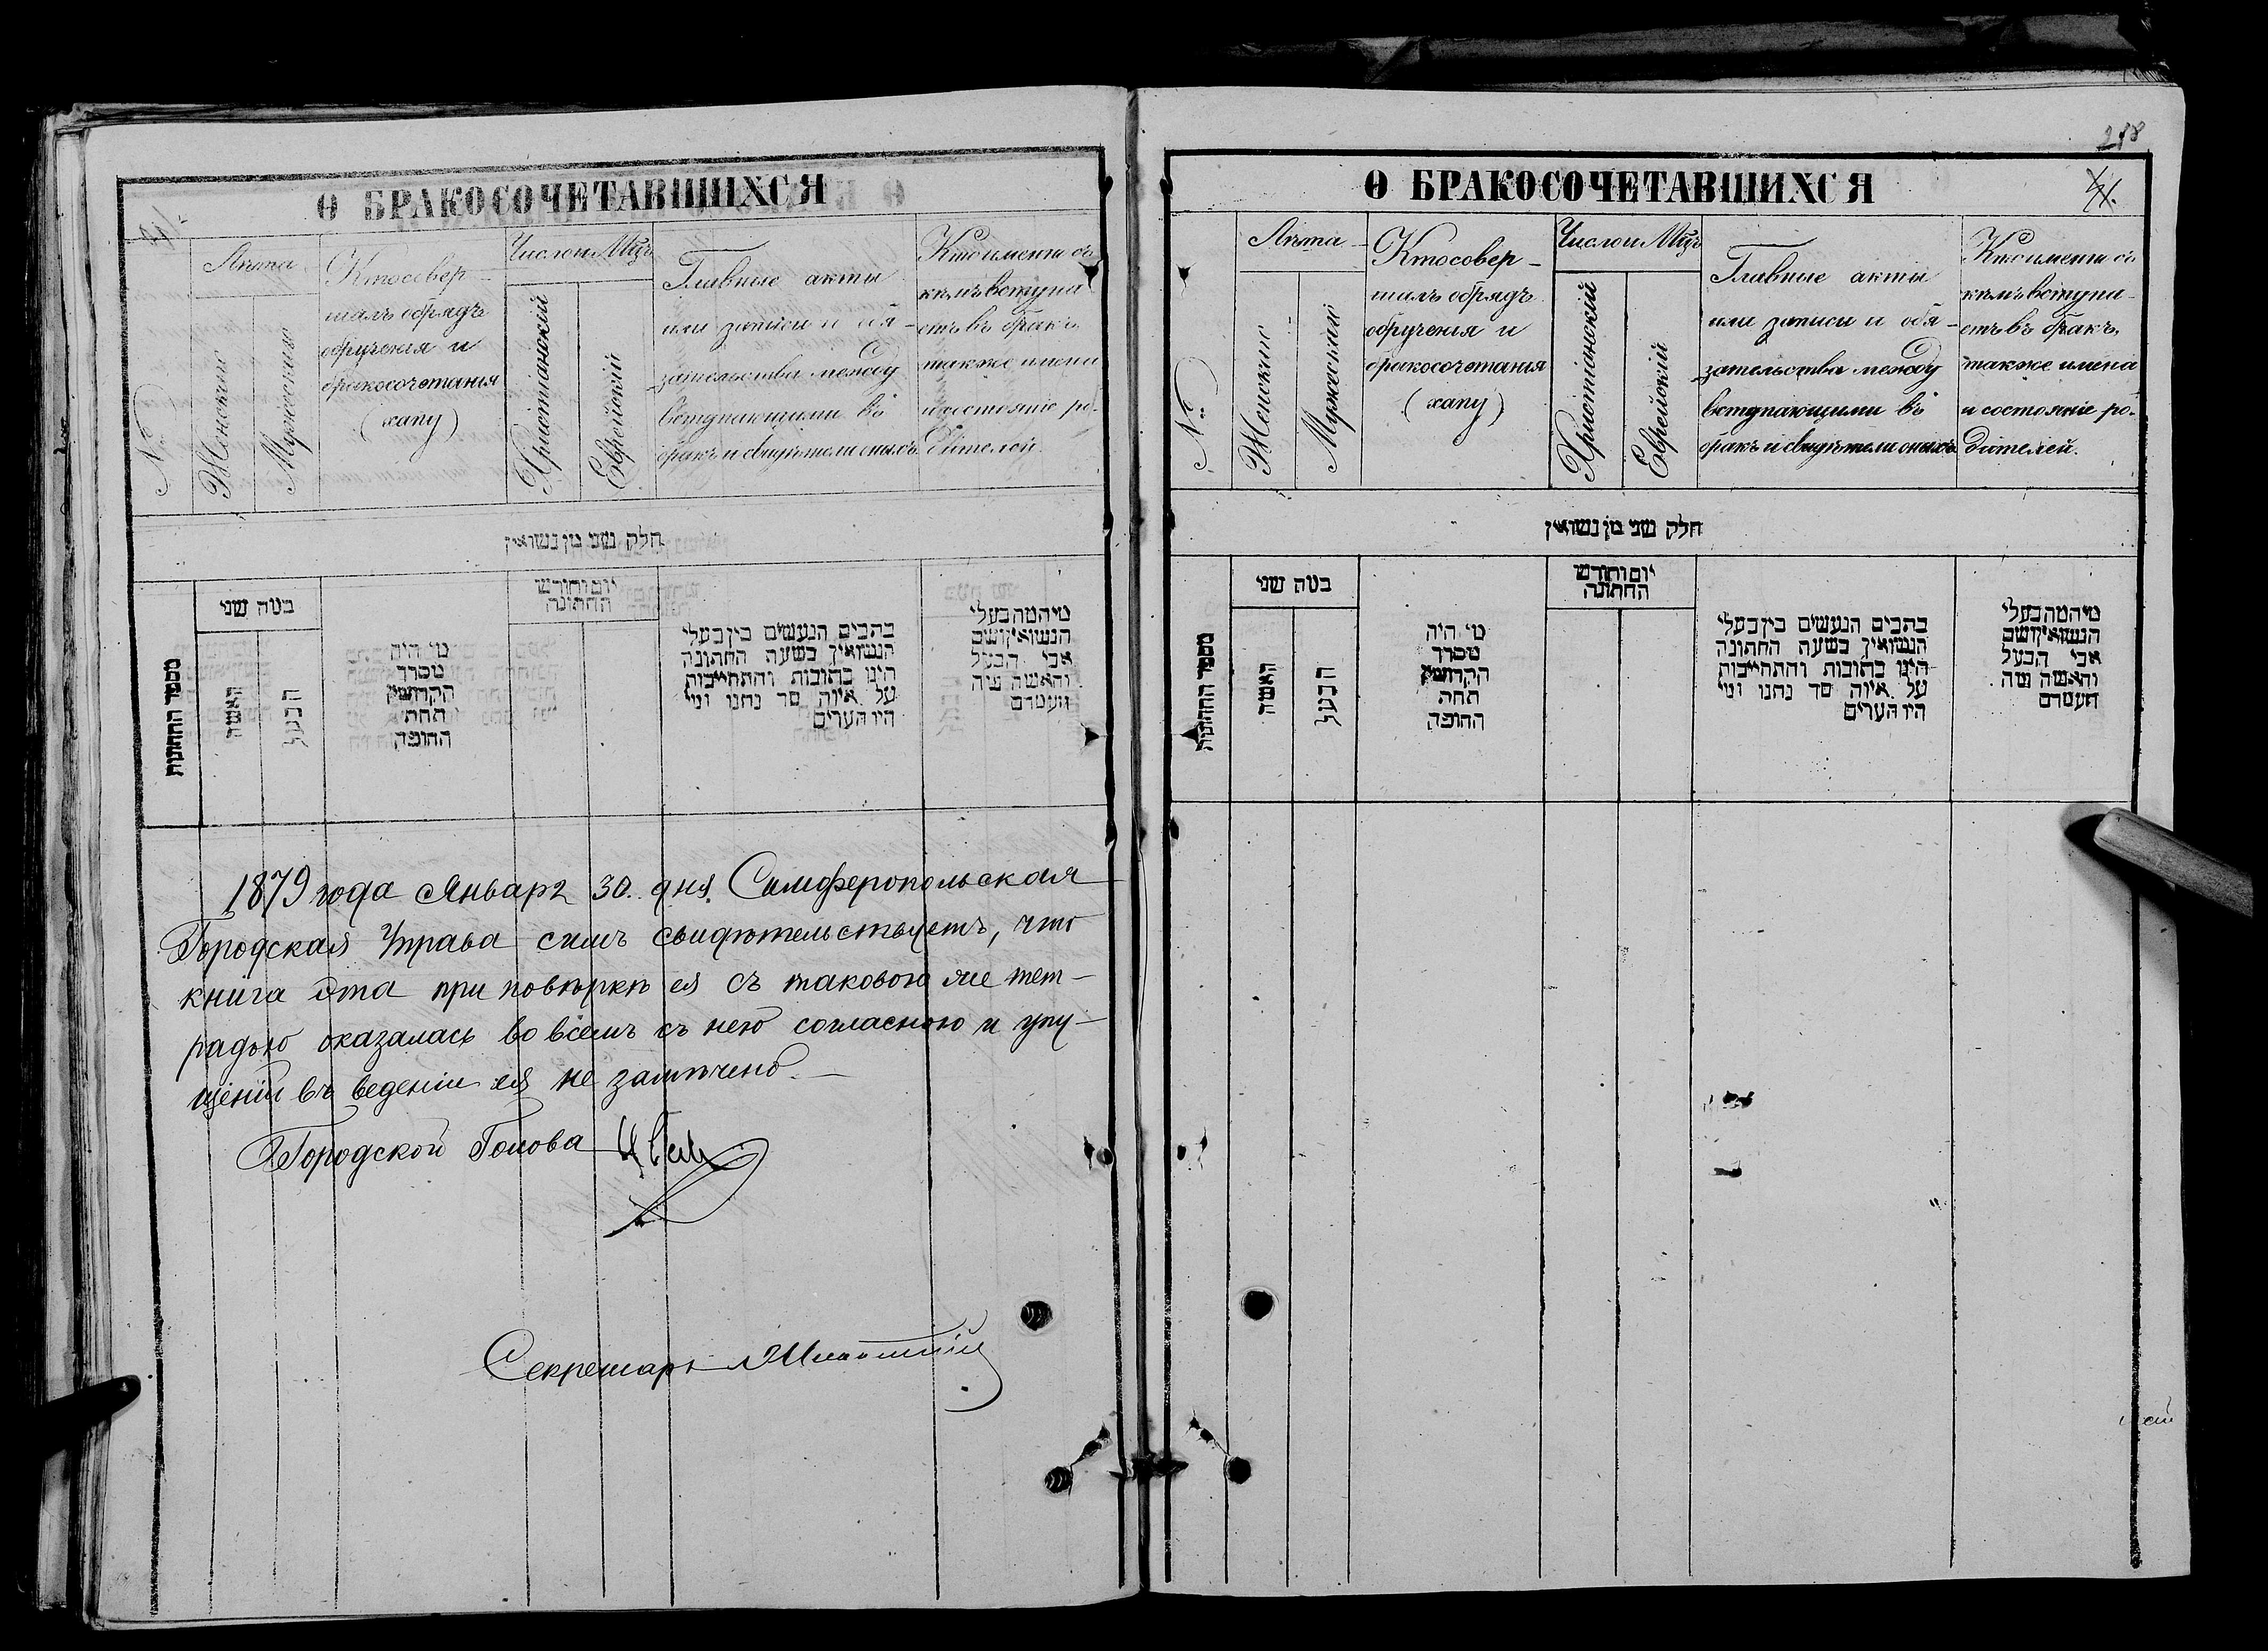 О БРАКОСОЧЕТАВШИХСЯ
№
Лѣта
Женскіе
Мужескіе
Кто совер-
шалъ обрядъ
обрученія и
бракосочетанія
(хапу)
Число и Мѣц
Христіанскій
Еврейскій
Главные акты
или записи и обя-
зательства между
вступающими въ
бракъ и свидѣтели оныхъ
Кто именн съ
кѣмъ вступа-
етъ въ бракъ,
также имена
и состояніе ро-
дителей.
חלק שני מן נשואין
מספר החתונות
במה שני
האשה
הבעל
מי היה
מסדר
הקדושין
תחת
החופה
יום וחודש
החתונה
בהבים הנעשים בין בעלי
הנשואין בשעה החתונה
היינו כתובות והתחייבות
על איזה סך נתנו ומי
היו העדים
מי המה בעלי
הנשואין ושם
אבי הבעל
והאשה
1879 года Января 30. дня. Симферопольская
Городская Управа симъ свидѣтельствуетъ, что
книга эта при повѣркѣ ея съ таковою же тет-
радью оказалась во всемъ съ нею согласною и упу-
щеній въ веденіи ея не замѣчено.—
Городской Голова
Секретарь
218
О БРАКОСОЧЕТАВШИХСЯ
№
Лѣта
Женскіе
Мужескіе
Кто совер-
шалъ обрядъ
обрученія и
бракосочетанія
(хапу)
Число и Мѣц
Христіанскій
Еврейскій
Главные акты
или записи и обя-
зательства между
вступающими въ
бракъ и свидѣтели оныхъ
Кто именн съ
кѣмъ вступа-
етъ въ бракъ,
также имена
и состояніе ро-
дителей.
חלק שני מן נשואין
מספר החתונות
במה שני
האשה
הבעל
מי היה
מסדר
הקדושין
תחת
החופה
יום וחודש
החתונה
בהבים הנעשים בין בעלי
הנשואין בשעה החתונה
היינו כתובות והתחייבות
על איזה סך נתנו ומי
היו העדים
מי המה בעלי
הנשואין ושם
אבי הבעל
והאשה